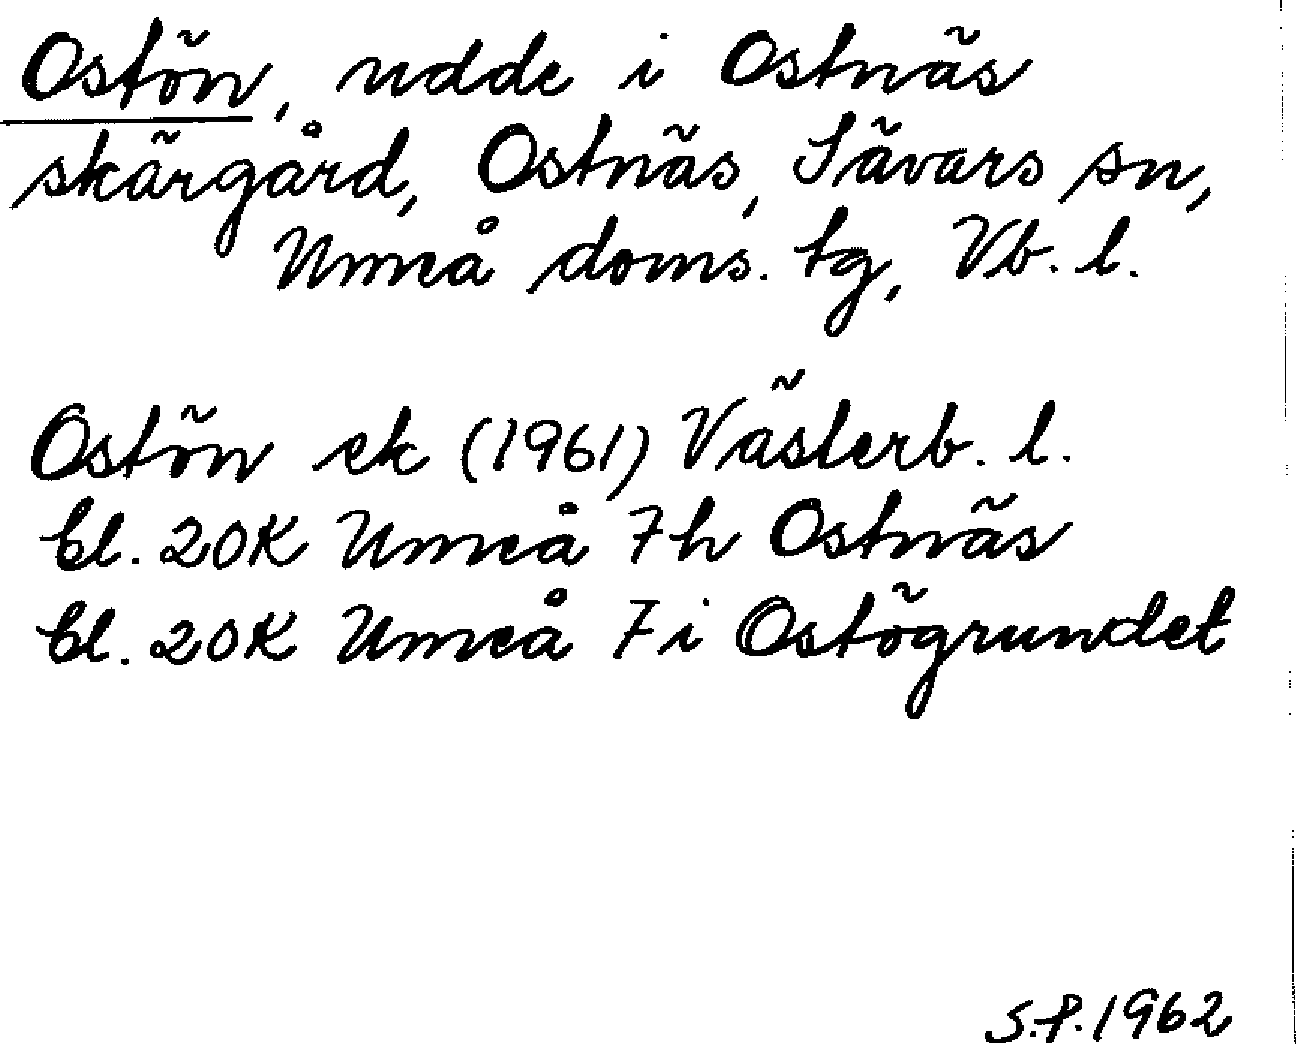 Ostön, udde i Ostnäs
skärgård, Ostnäs, Sävars sn,
Umeå doms. tg, Vb. l.
Ostön ek (1961) Västerb. l.
bl. 20K Umeå 7h Ostnäs
bl. 20K Umeå 7i Ostögrundet
S.P. 1962